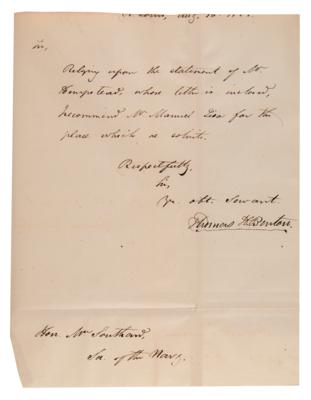 St. Louis, Aug. 10
Sir,
Relying upon the statement of Mr.
Hempstead, whose letter is enclosed, I
recommend Mr. Manuel Lisa for the
place which he solicits.
Respectfully,
Sir,
Yr. obt. Servant.
Thomas H. Benton.
Hon. Mr. Southard,
Sec. of the Navy.